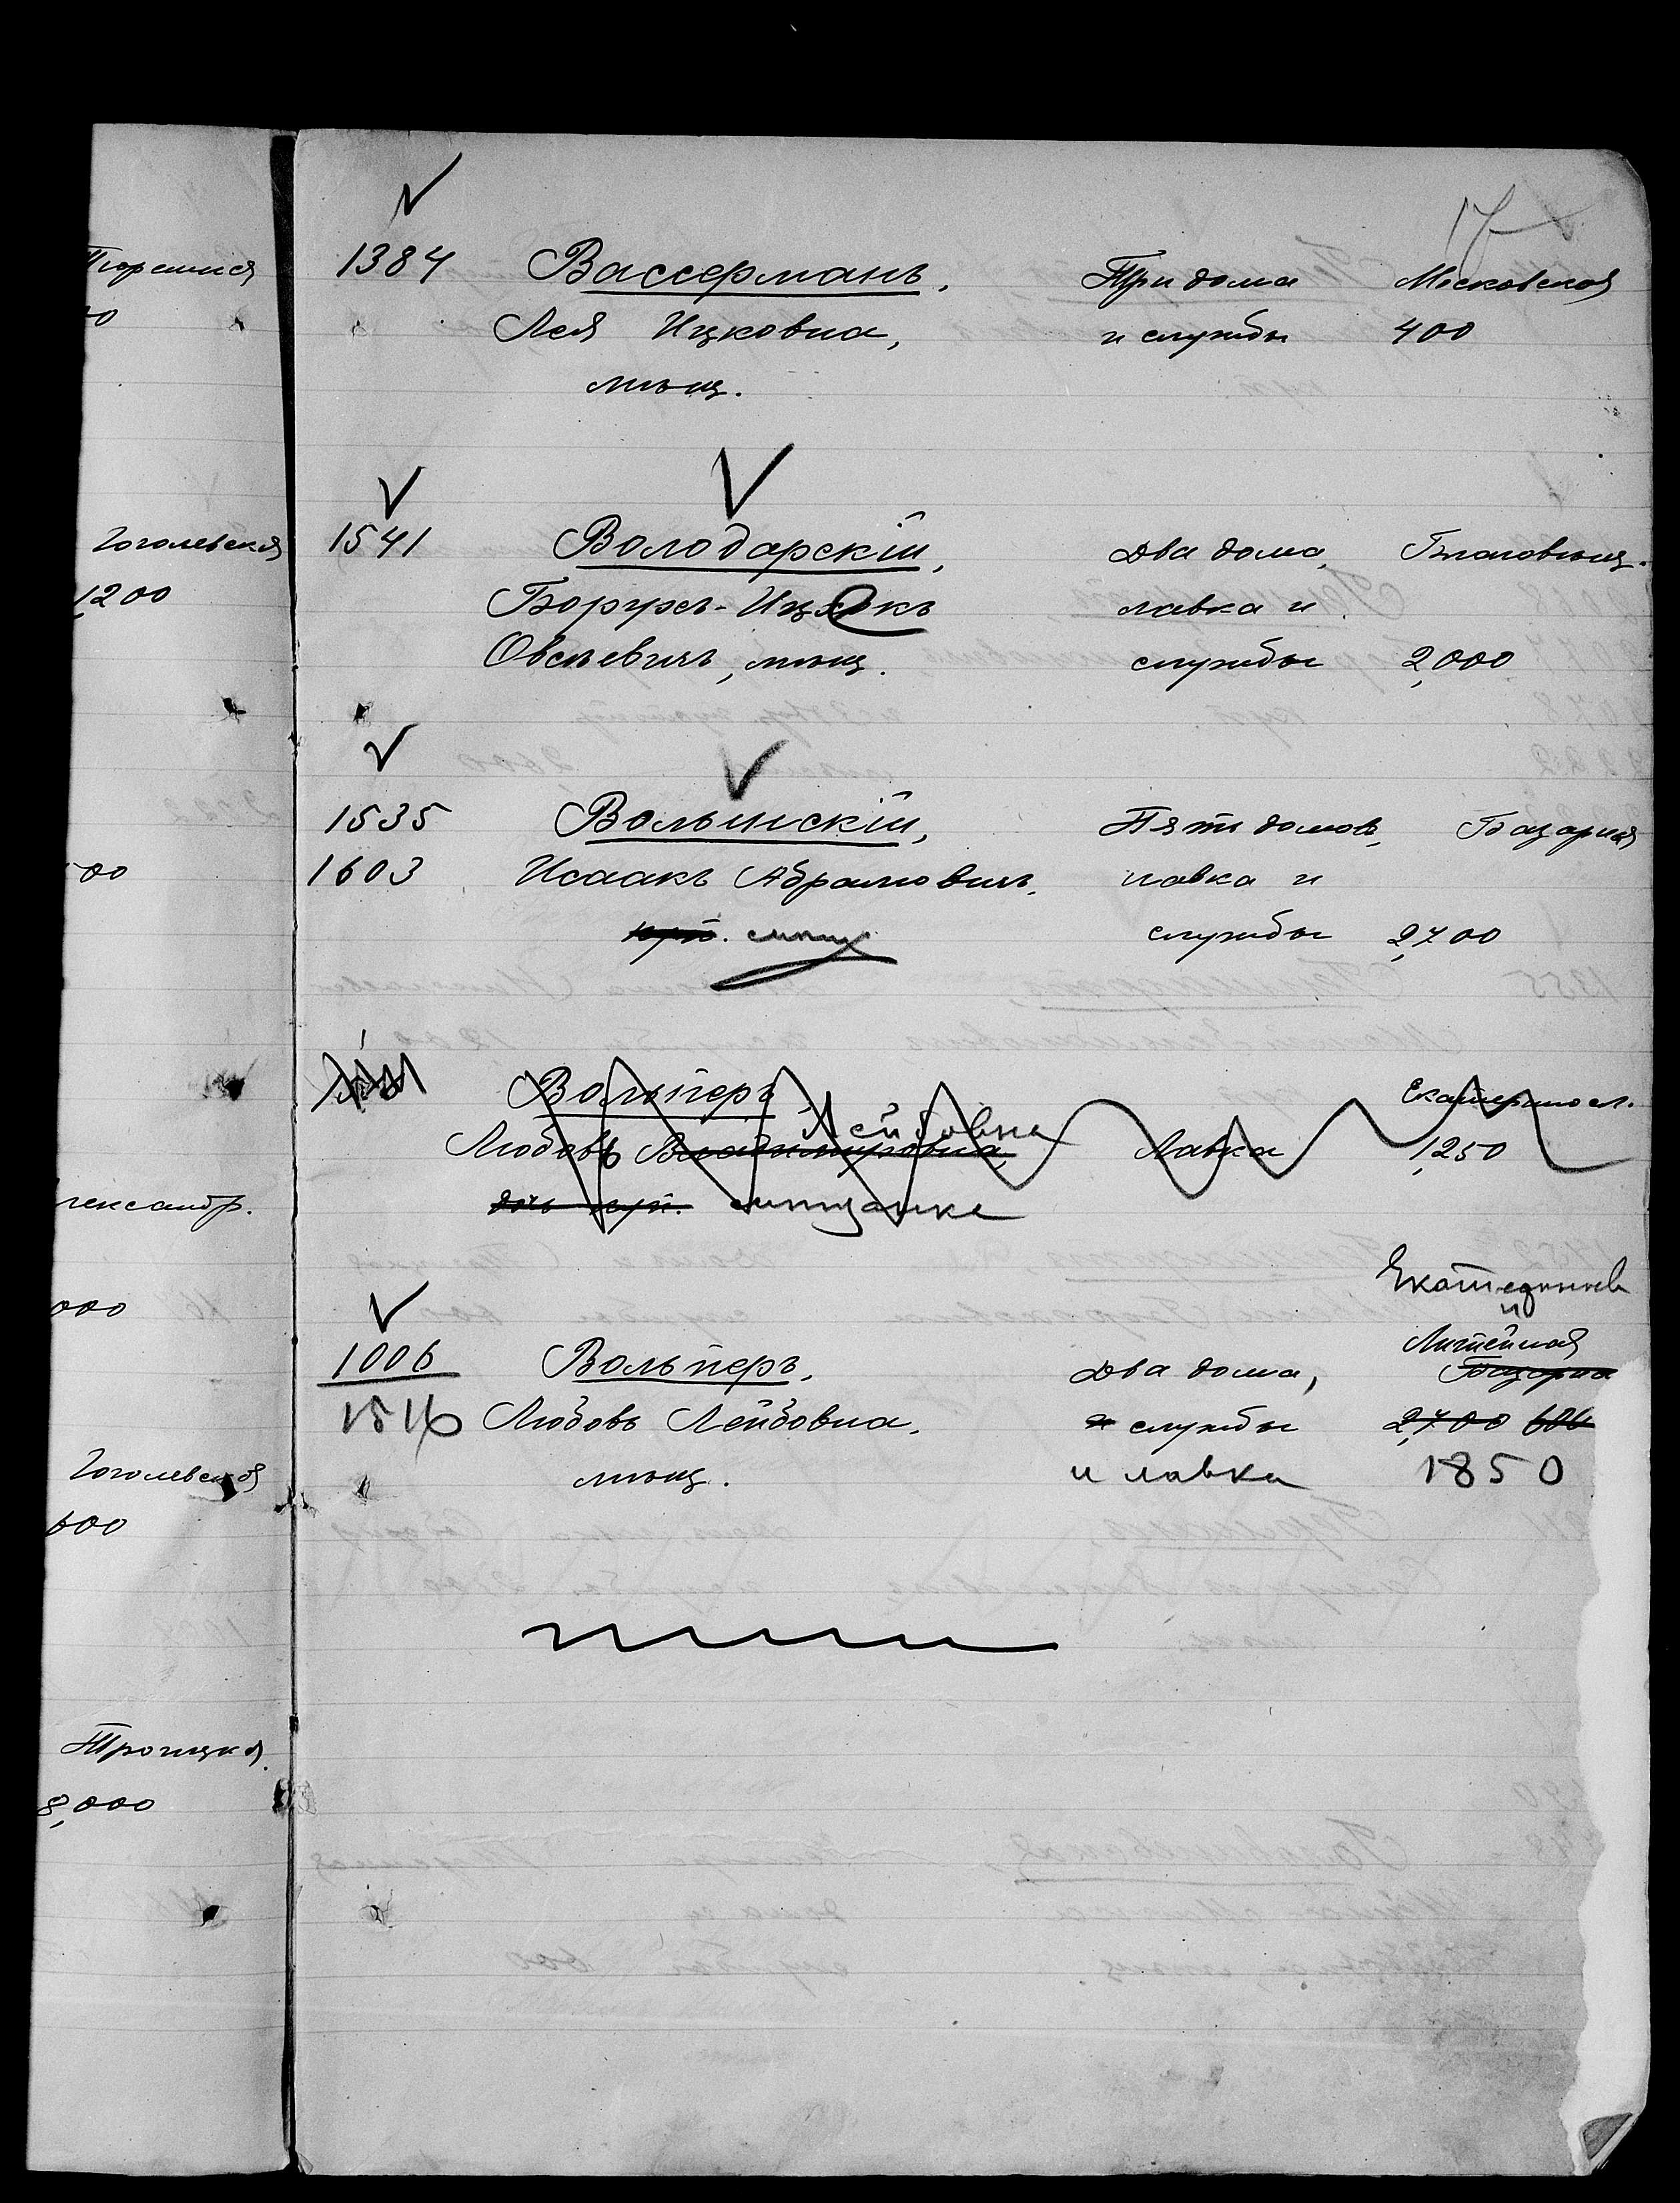 17
1384 Вассерманъ, Три дома Московская
Лея Ицковна, и службы 400
мѣщ.
1541 Володарскій, Два дома, Благовѣщ.
Борухъ-Ицекъ лавка и
Овсѣевичъ, мѣщ. службы 2,000
1535 Волынскій, Пять домовъ, Базарная
1603 Исаакъ Абрамовичъ, лавка и
куп. мѣщ службы 2,700
Вольперъ, Екатериносл.
Лейбовна
Любовь Владимировна, Лавка 1,250
дочь куп. мѣщанка
Литейная
1006 Вольперъ, Два дома, Базарная
1516 Любовь Лейбовна, и службы 2,700 600
мѣщ. и лавка 1850
Гоголевская
1,200
лександр.
000
Гоголевская
600
Троицкая
8,000